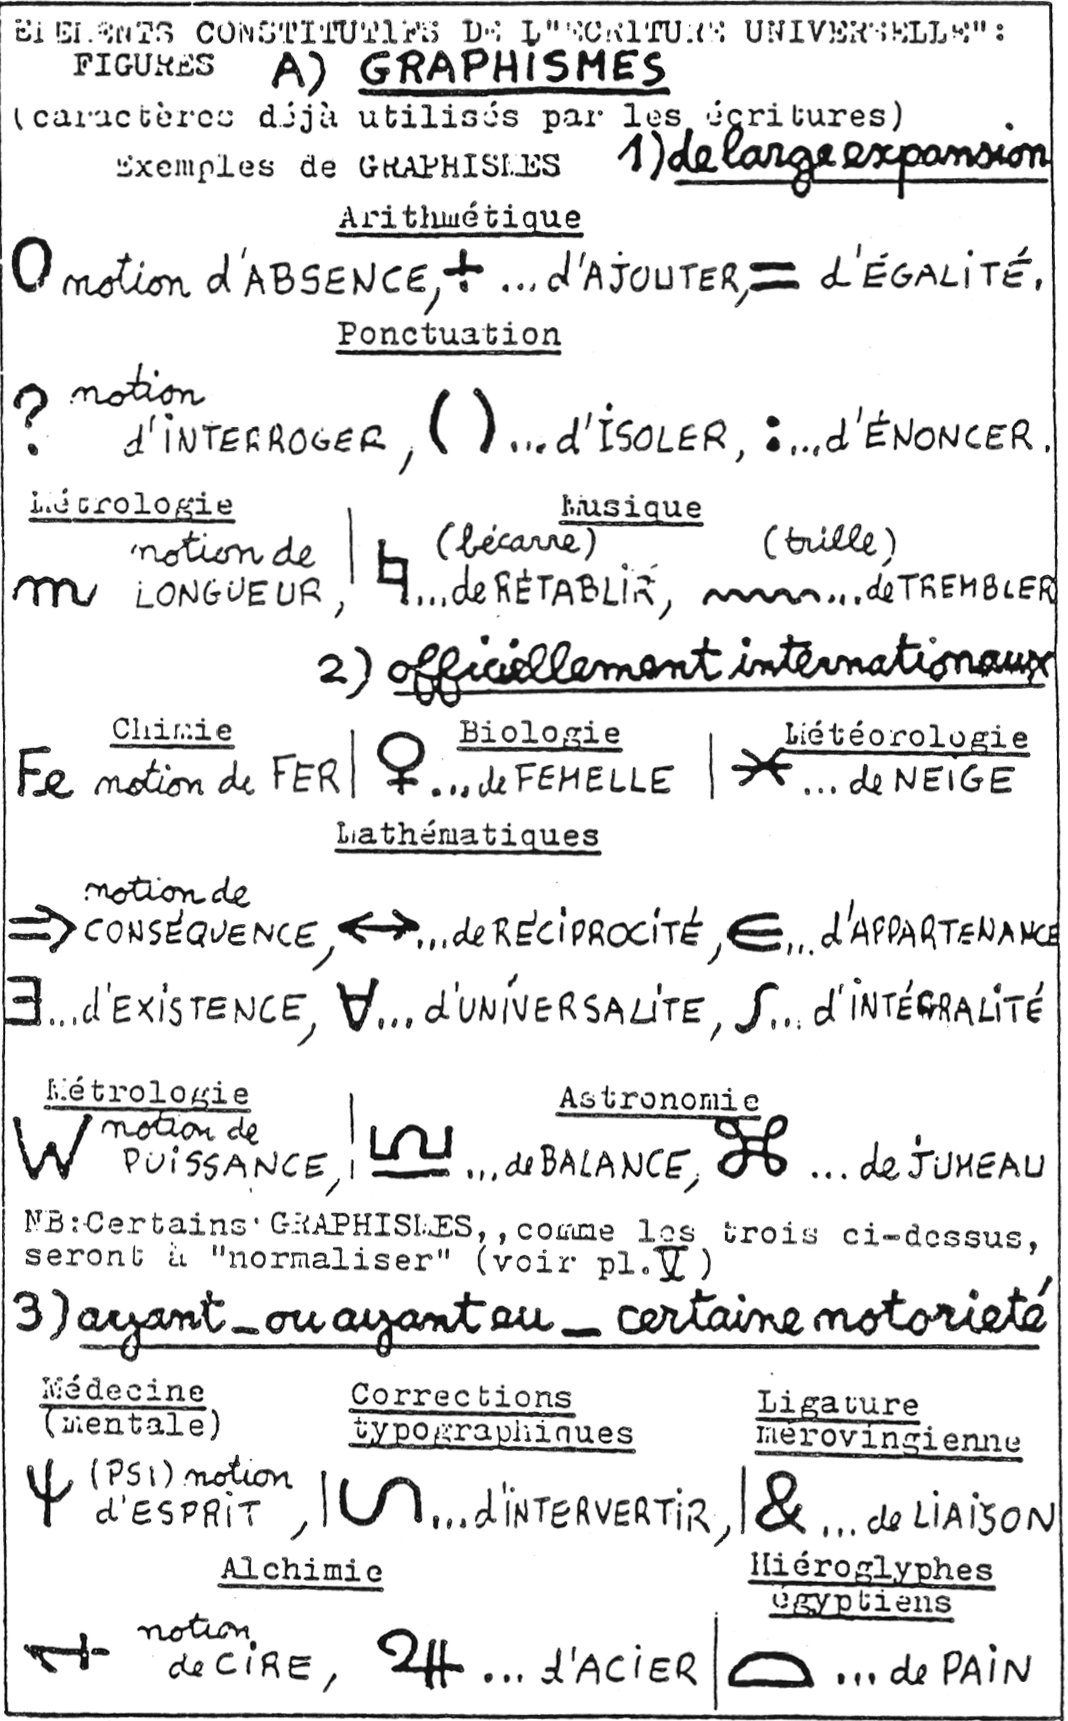 ELEMENTS CONSTITUTIFS DE L"ECRITURE UNIVERSELLE":
FIGURES A) GRAPHISMES
(caractères déjà utilisés par les écritures)
Exemples de GRAPHISMES 1) de large expansion
Arithmétique
0 notion d'ABSENCE, + ... d'AJOUTER, = d'ÉGALITÉ.
Ponctuation
? notion
d'INTERROGER, ( ) ... d'ISOLER, : ... d'ÉNONCER.
Métrologie | Musique
notion de (bécarre) (trille)
m LONGUEUR, ♮ ... de RÉTABLIR, ... de TREMBLER
2) officiellement internationaux
Chimie | Biologie | Météorologie
Fe notion de FER | ♀ ... de FEMELLE | ... de NEIGE
Mathématiques
notion de
⇒ CONSÉQUENCE, ↔ ... de RÉCIPROCITÉ, ∈ ... d'APPARTENANCE
∃ ... d'EXISTENCE, ∀ ... d'UNIVERSALITE, ∫ ... d'INTÉGRALITÉ
Métrologie | Astronomie
notion de
W PUISSANCE, | ... de BALANCE, ⌘ ... de JUMEAU
NB:Certains GRAPHISMES,,comme les trois ci-dessus,
seront à "normaliser" (voir pl.V)
3) ayant _ ou ayant eu _ certaine notorieté
Médecine Corrections Ligature
(mentale) typographiques mérovingienne
Ψ (PSI) notion
d'ESPRIT, | ... d'INTERVERTIR, | & ... de LIAISON
Alchimie Hiéroglyphes
égyptiens
notion
de CIRE, ... d'ACIER | ... de PAIN